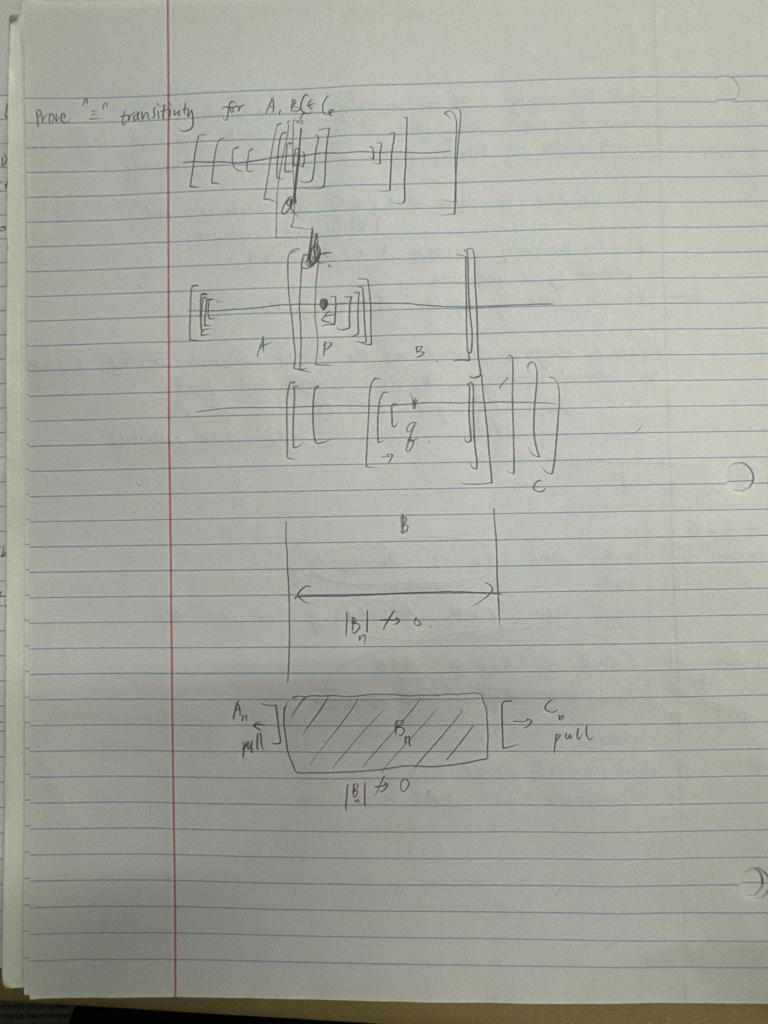 Prove "≡" transitivity for A, B, C ∈ C
a
b
A P B
q
→
C
B
|Bₙ| ↛ 0.
Aₙ ← pull Bₙ → Cₙ pull
|Bₙ| ↛ 0.